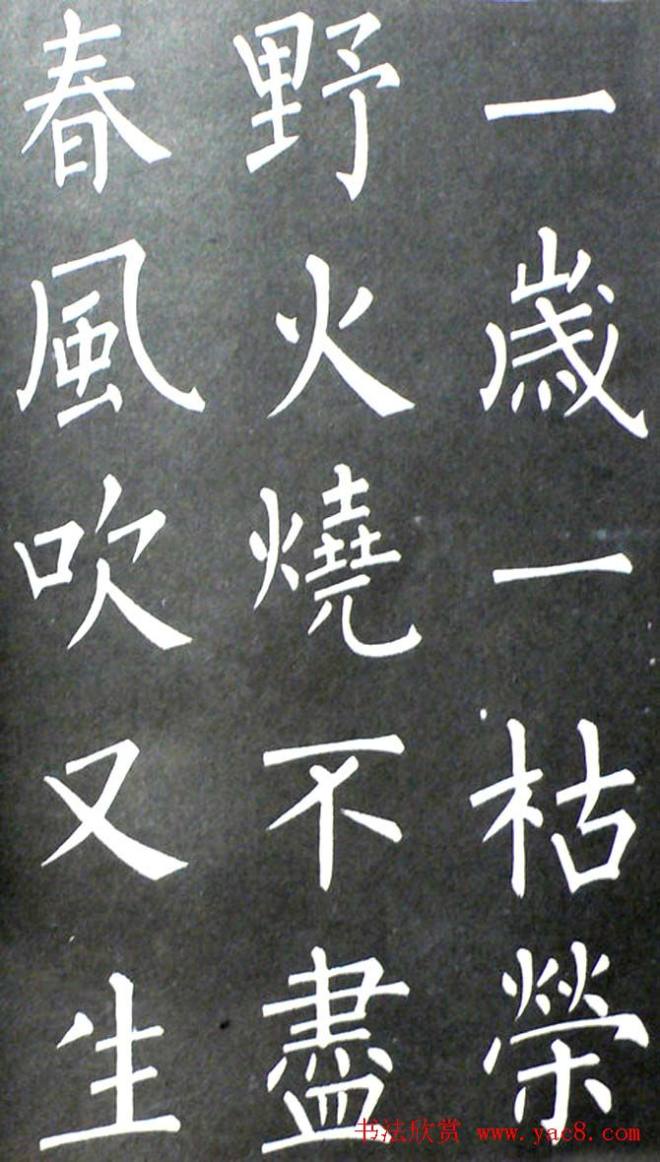 一歲一枯榮
野火燒不盡
春風吹又生
书法欣赏 www.yac8.com